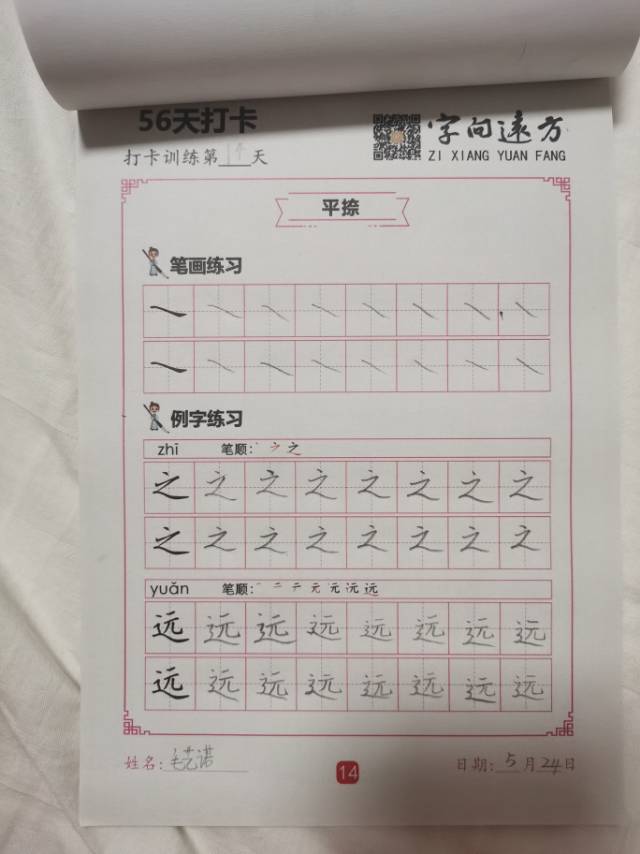 56天打卡
字向远方
打卡训练第14天
ZI XIANG YUAN FANG
平捺
笔画练习
㇏ ㇏ ㇏ ㇏ ㇏ ㇏ ㇏ ㇏
㇏ ㇏ ㇏ ㇏ ㇏ ㇏ ㇏ ㇏
例字练习
zhī 笔顺: 丶 ㇇ 之
之 之 之 之 之 之 之 之
之 之 之 之 之 之 之 之
yuǎn 笔顺: 一 二 テ 元 远 远 远
远 远 远 远 远 远 远 远
远 远 远 远 远 远 远 远
姓名: 毛艺诺
14
日期: 5月24日